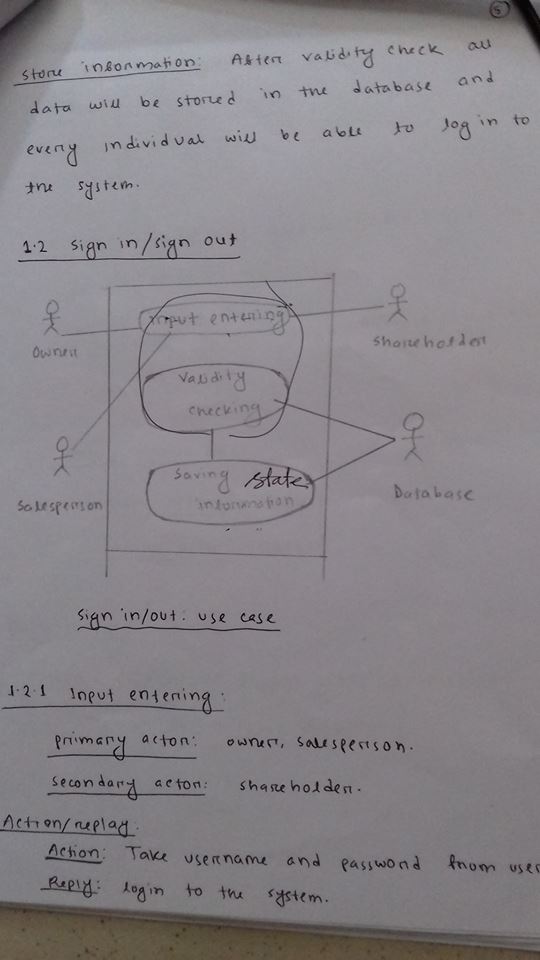 5
store information: After validity check all
data will be stored in the database and
every individual will be able to log in to
the system.
1.2 sign in/sign out
input entering
Owner
shareholder
validity
checking
saving state
information
salesperson
Database
sign in/out: use case
1.2.1 Input entering:
primary actor: owner, salesperson.
secondary actor: shareholder.
Action/replay:
Action: Take username and password from user
Reply: login to the system.